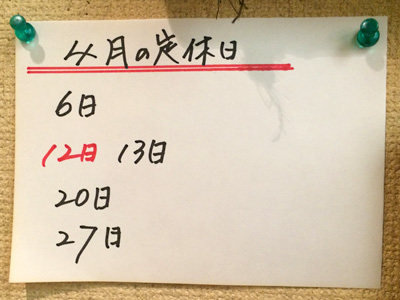 4月の定休日
6日
12日 13日
20日
27日